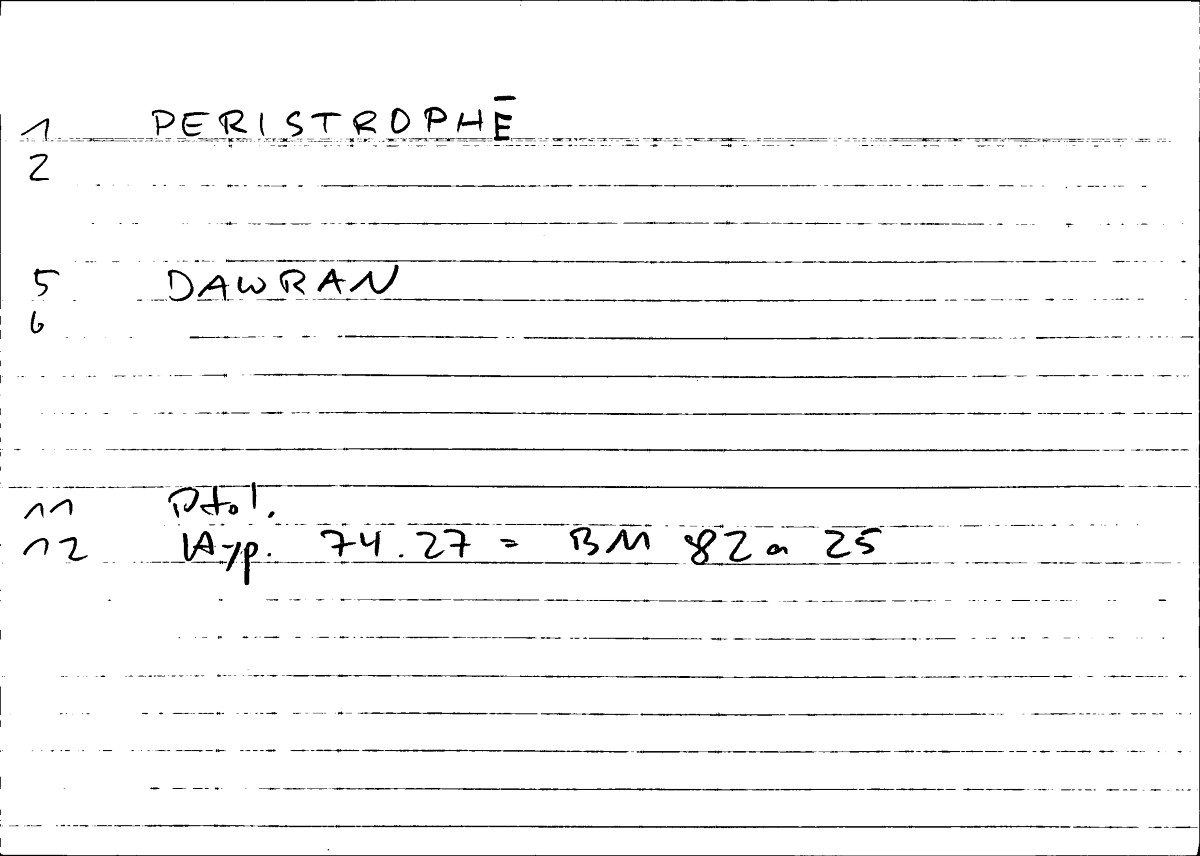 1 PERISTROPHĒ
2
5 DAWRAN
6
11 Ptol.
12 Hyp. 74.27 = BM 82 a 25